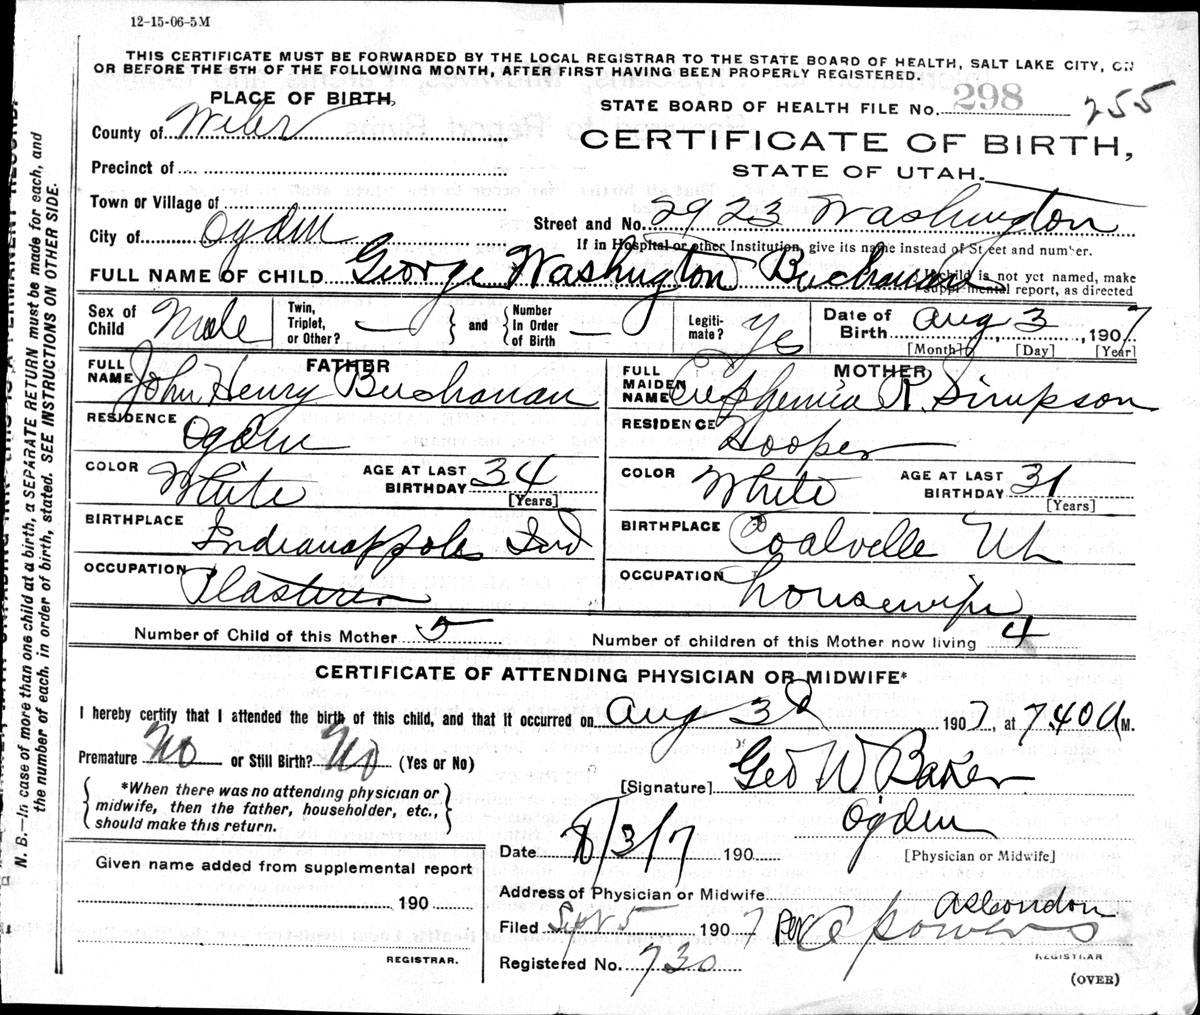 12-15-06-5M
THIS CERTIFICATE MUST BE FORWARDED BY THE LOCAL REGISTRAR TO THE STATE BOARD OF HEALTH, SALT LAKE CITY, ON
OR BEFORE THE 5TH OF THE FOLLOWING MONTH, AFTER FIRST HAVING BEEN PROPERLY REGISTERED.
PLACE OF BIRTH,
STATE BOARD OF HEALTH FILE No. 298 255
County of Weber
CERTIFICATE OF BIRTH,
Precinct of
STATE OF UTAH.
Town or Village of
Street and No. 2923 Washington
City of Ogden
If in Hospital or other Institution, give its name instead of Street and number.
FULL NAME OF CHILD George Washington Buchanan
If child is not yet named, make
supplemental report, as directed
Sex of Child Male
Twin, Triplet, or Other? —
and
Number In Order of Birth —
Legitimate? Yes
Date of Birth Aug 3, 1907
[Month] [Day] [Year]
FATHER
FULL NAME John Henry Buchanan
RESIDENCE Ogden
COLOR White
AGE AT LAST BIRTHDAY 34
[Years]
BIRTHPLACE Indianappolis Ind
OCCUPATION Plasterer
MOTHER
FULL MAIDEN NAME R. Simpson
RESIDENCE Hooper
COLOR White
AGE AT LAST BIRTHDAY 31
[Years]
BIRTHPLACE Coalville Ut
OCCUPATION housewife
Number of Child of this Mother 5
Number of children of this Mother now living 4
CERTIFICATE OF ATTENDING PHYSICIAN OR MIDWIFE*
I hereby certify that I attended the birth of this child, and that it occurred on Aug 3d 1907, at 740 a M.
Premature No or Still Birth? No (Yes or No)
*When there was no attending physician or
midwife, then the father, householder, etc.,
should make this return.
[Signature] Geo W Baker
Ogden
Date 8/3/7 190
[Physician or Midwife]
Given name added from supplemental report
190
REGISTRAR.
Address of Physician or Midwife
Filed Sept 5 1907
Per Powers
REGISTRAR
Registered No. 730
(OVER)
N. B.—In case of more than one child at a birth, a SEPARATE RETURN must be made for each, and
the number of each, in order of birth, stated. SEE INSTRUCTIONS ON OTHER SIDE.